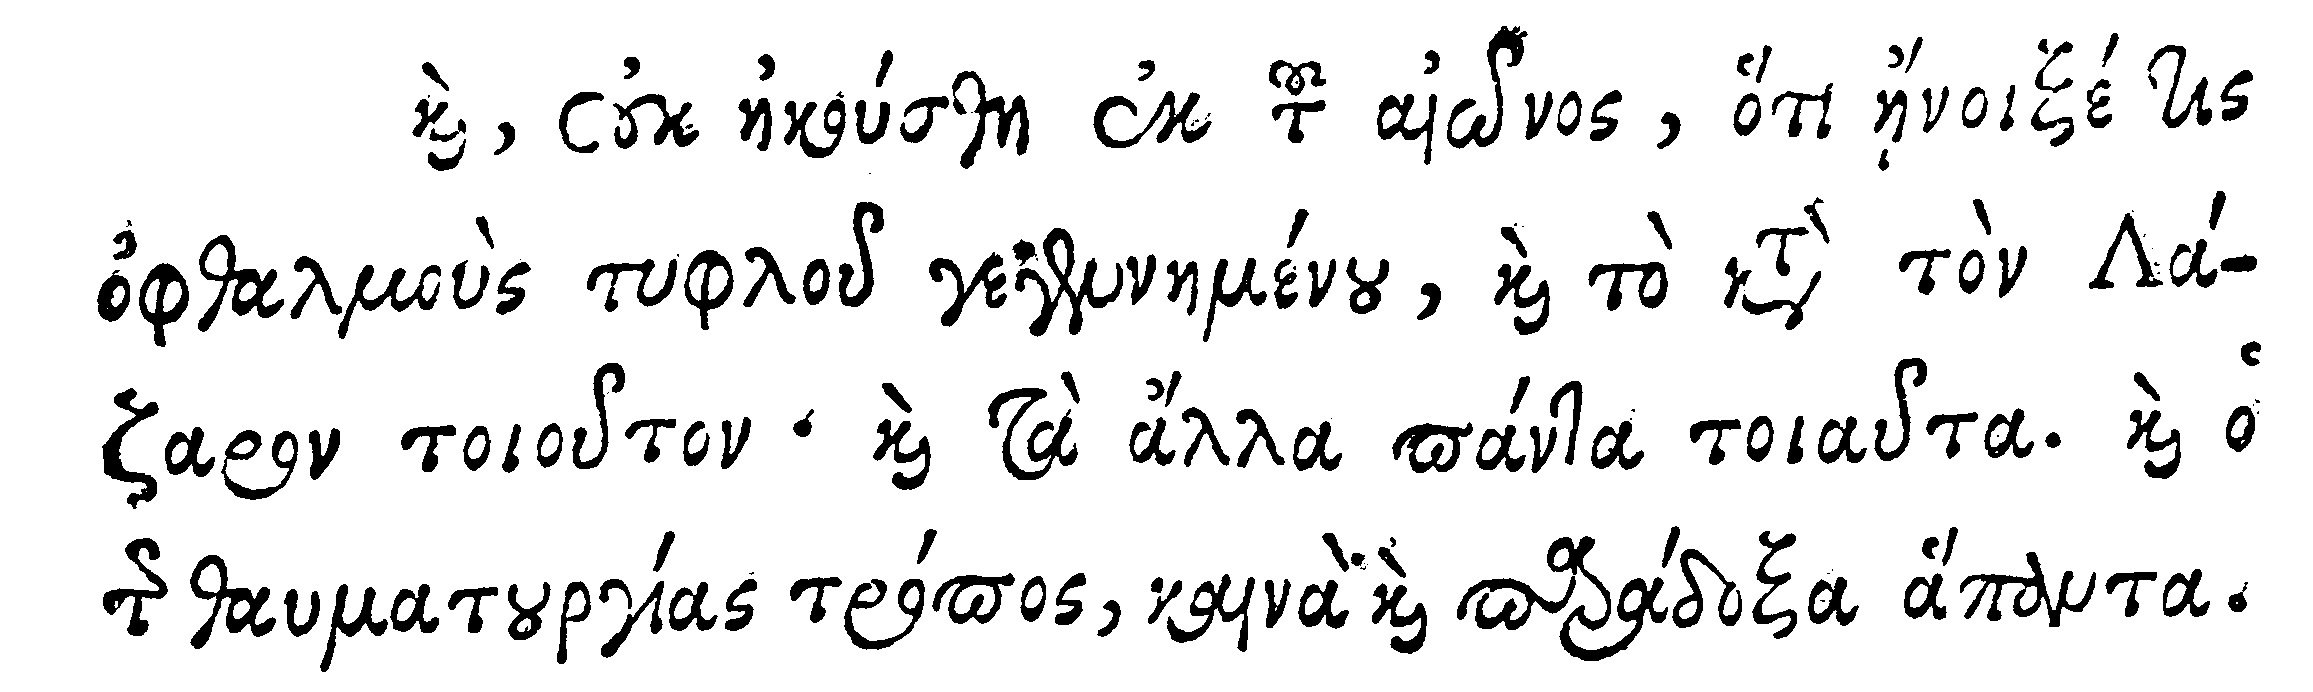 καὶ, οὐκ ἠκούσθη ἐκ τοῦ αἰῶνος, ὅτι ἤνοιξέ τις
ὀφθαλμοὺς τυφλοῦ γεγεννημένου, καὶ τὸ κατὰ τὸν Λά-
ζαρον τοιοῦτον· καὶ τὰ ἄλλα πάντα τοιαῦτα. καὶ ὁ
τῆς θαυματουργίας τρόπος, καινὰ καὶ παράδοξα ἅπαντα.